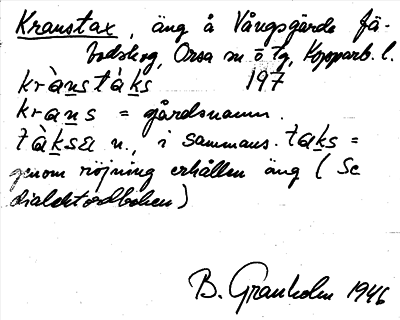 Kranstax, äng å Vångsgärde fä-
bodskog, Orsa sn ö tg, Kopparb. l.
krànstàks 197
krans = gårdsnamn.
tàksa n., i sammans. taks =
genom röjning erhållen äng (Se
dialektordboken)
B. Granholm 1946